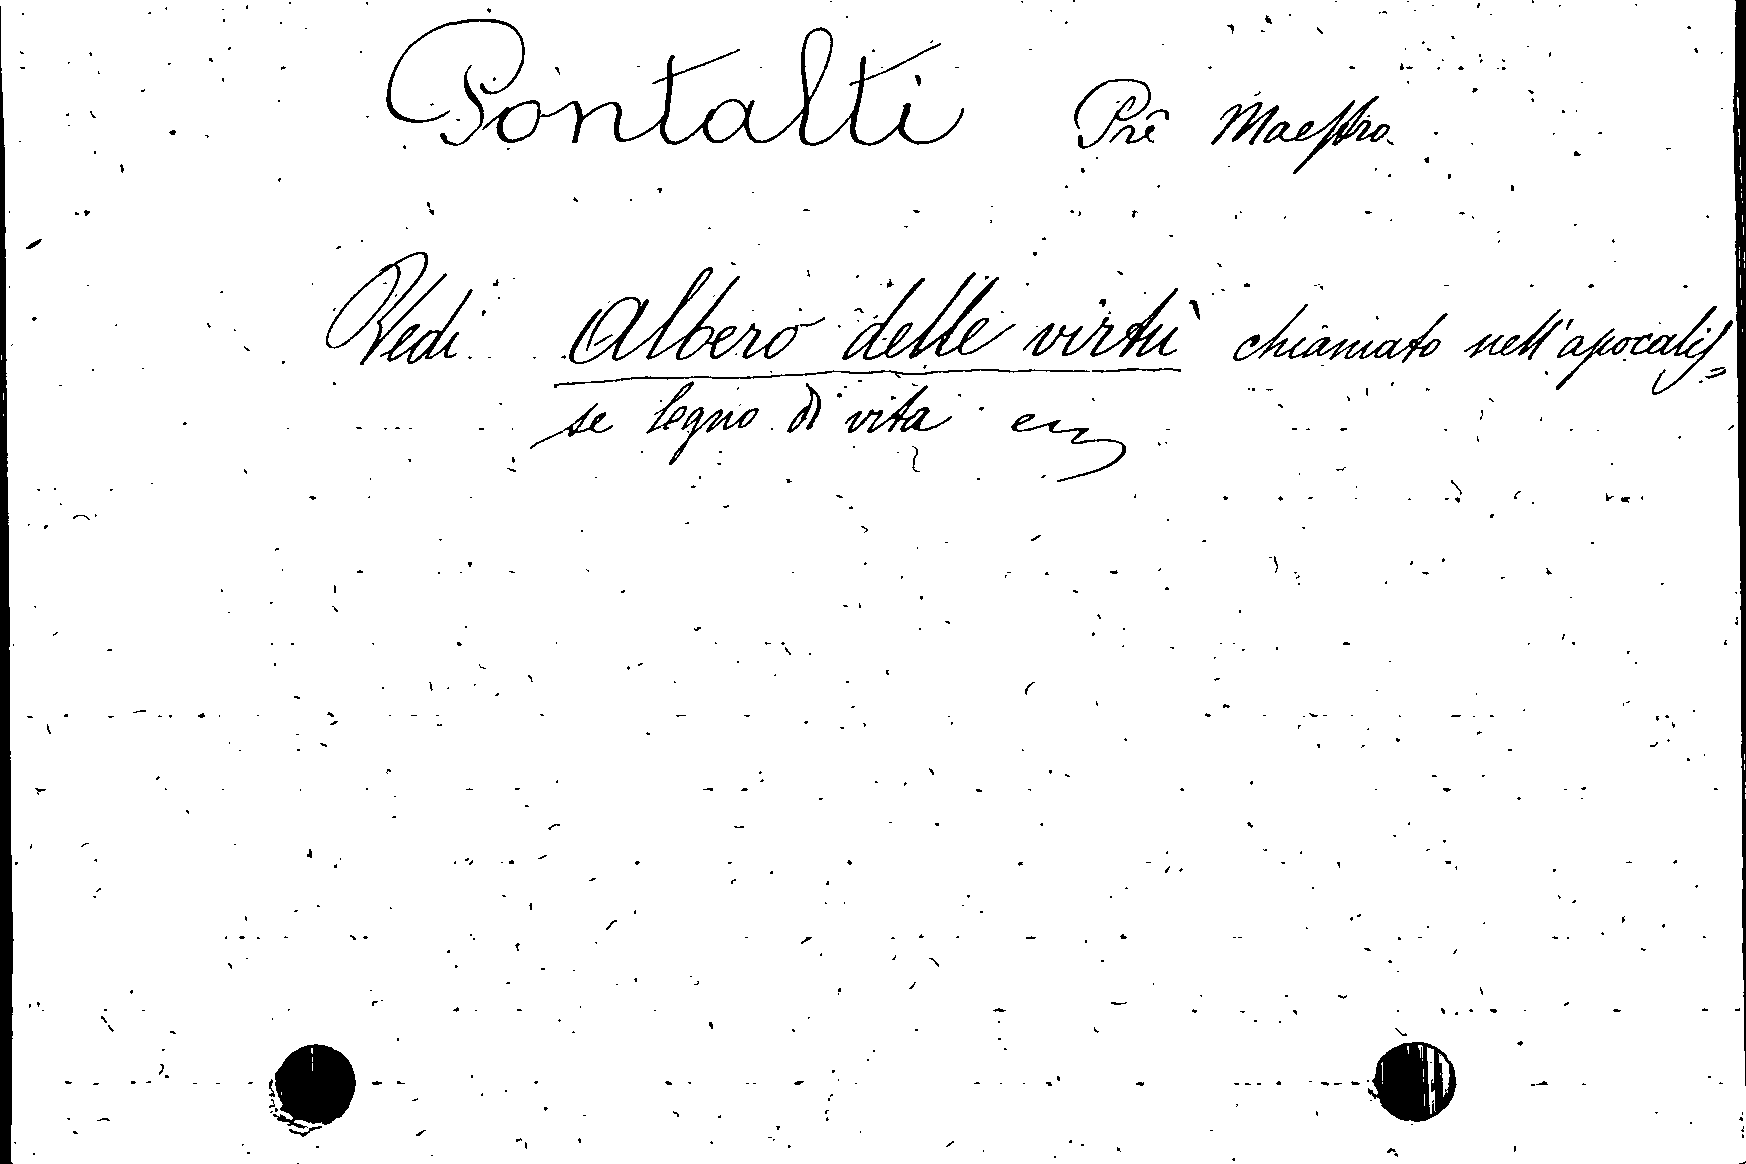 Pontalti Prê Maestro.
Vedi Albero delle virtù chiamato nell'apocalis=
se legno di vita